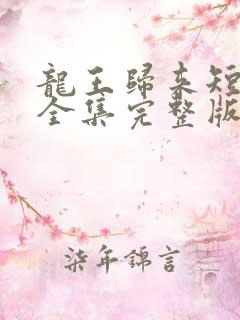 龍王歸來短
全集完整版
柒年錦言